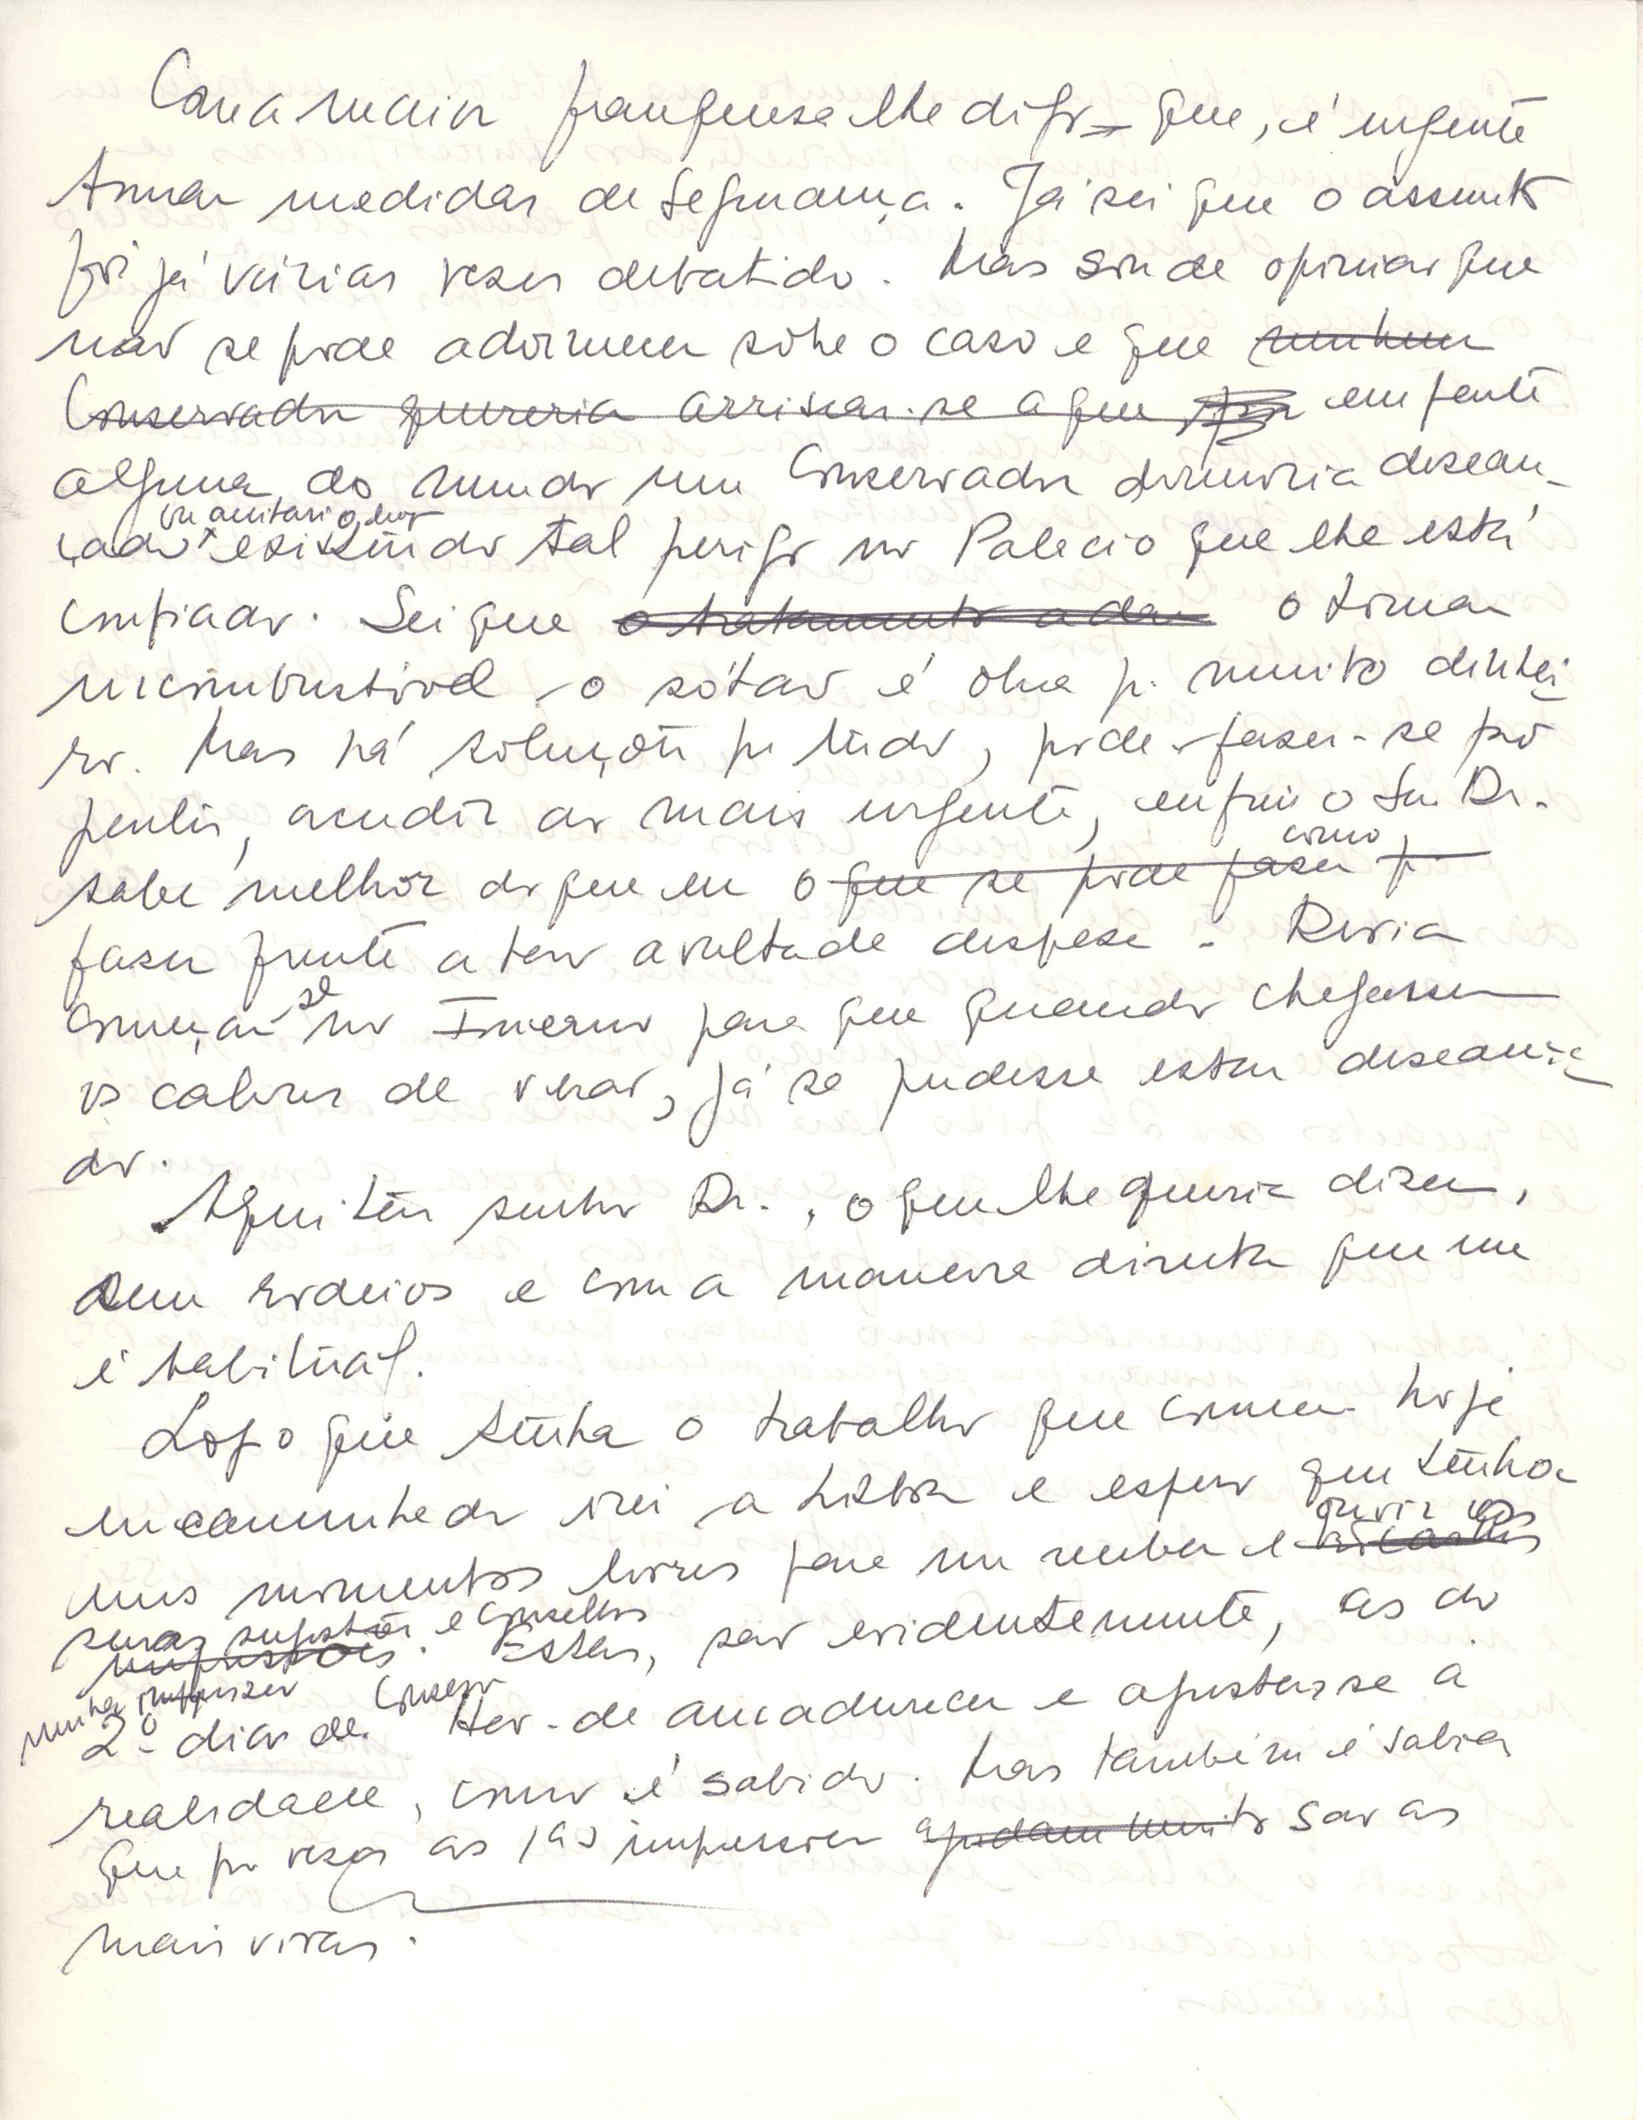 Com a maior franqueza lhe digo – que, é urgente
tomar medidas de segurança. Já sei que o assunto
foi já várias vezes debatido. Mas sou de opinião que
não se pode adormecer sobre o caso e que nenhum
Conservador quereria arriscar-se a que em parte
alguma do mundo um Conservador dormiria descan-
çado existindo tal perigo no Palacio que lhe está
confiado. Sei que o tratamento a dar o tornar
incombustivel o sótão é obra p. muito dinhei-
ro. Mas há soluções p. tudo, pode-fazer-se por
partes, acudir ao mais urgente, enfim o Sr. Dr.
sabe melhor do que eu o que se pode fazer p. como
fazer frente a tão avultada despesa. Devia
começar se no Inverno para que quando chegassem
os calores de verão, já se pudesse estar descança-
do.
Aqui tem senhor Dr., o que lhe queria dizer,
sem rodeios e com a maneira directa que me
é habitual.
Logo que tenha o trabalho que comecei hoje
encaminhado irei a Lisboa e espero que tenha
uns momentos livres para me receber e ouvir as
suas sugestões e conselhos. Estas, são evidentemente, as do
2º dia de Hão-de amadurecer e ajustar-se à
realidade, como é sabido. Mas também é sabido
que por vezes as 1as impressões ajudam muito são as
mais vivas.